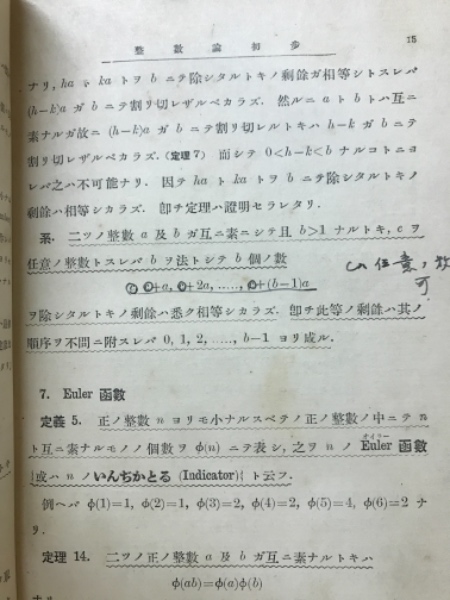 整數論初步 15
ナリ, ha ト ka トヲ b ニテ除シタルトキノ剩餘ガ相等シトスレバ
(h−k)a ガ b ニテ割リ切レザルベカラズ. 然ルニ a ト b トハ互ニ
素ナルガ故ニ (h−k)a ガ b ニテ割リ切レルトキハ h−k ガ b ニテ
割リ切レザルベカラズ. (定理 7) 而シテ 0<h−k<b ナルコトニヨ
レバ之ハ不可能ナリ. 因テ ha ト ka トヲ b ニテ除シタルトキノ
剩餘ハ相等シカラズ. 卽チ定理ハ證明セラレタリ.
系. 二ツノ整數 a 及 b ガ互ニ素ニシテ且 b>1 ナルトキ, c ヲ
任意ノ整數トスレバ b ヲ法トシテ b 個ノ數
c, c+a, c+2a, ....., c+(b−1)a
任意ノ数
可
ヲ除シタルトキノ剩餘ハ悉ク相等シカラズ. 卽チ此等ノ剩餘ハ其ノ
順序ヲ不問ニ附スレバ 0, 1, 2, ....., b−1 ヨリ成ル.
7. Euler 函數
定義 5. 正ノ整數 n ヨリモ小ナルスベテノ正ノ整數ノ中ニテ n
ト互ニ素ナルモノノ個數ヲ ϕ(n) ニテ表シ, 之ヲ n ノ Euler 函數
オイラー
{或ハ n ノいんぢかとる (Indicator)} ト云フ.
例ヘバ ϕ(1)=1, ϕ(2)=1, ϕ(3)=2, ϕ(4)=2, ϕ(5)=4, ϕ(6)=2 ナ
リ.
定理 14. 二ツノ正ノ整數 a 及 b ガ互ニ素ナルトキハ
ϕ(ab)=ϕ(a)ϕ(b)
ナリ.